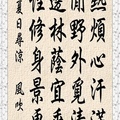 熱煩心汗滿
閒野外覓清
邊林蔭宜
性修身景
夏日尋涼 風吹